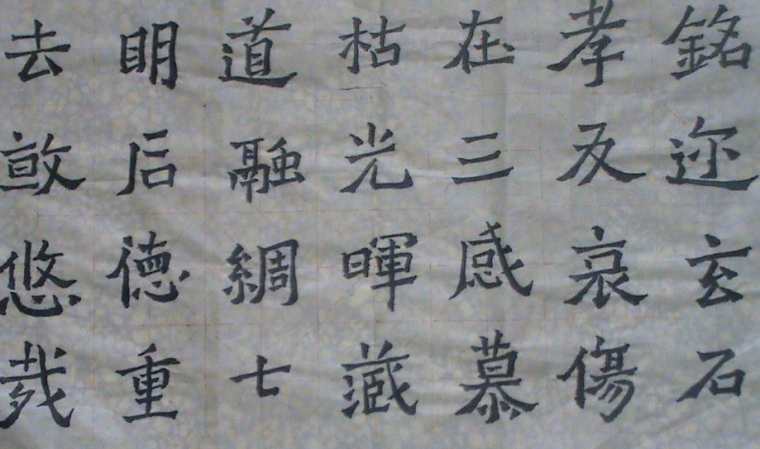 銘迩玄石
孝友哀傷
在三感慕
枯光暉藏
道融綢七
明后德重
去悠